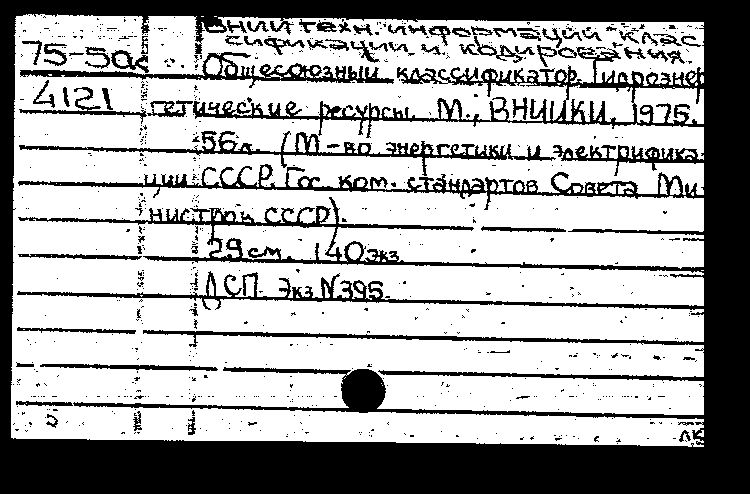 ВНИИ техн. информации клас
сификации и кодирования.
75-50к Общесоюзный классификатор. Гидроэнер
4121 гетические ресурсы. М., ВНИИКИ, 1975.
56л. (М-во энергетики и электрифика-
ции СССР. Гос. ком. стандартов Совета Ми-
нистров СССР).
29см. 140экз.
ДСП. Экз N395.